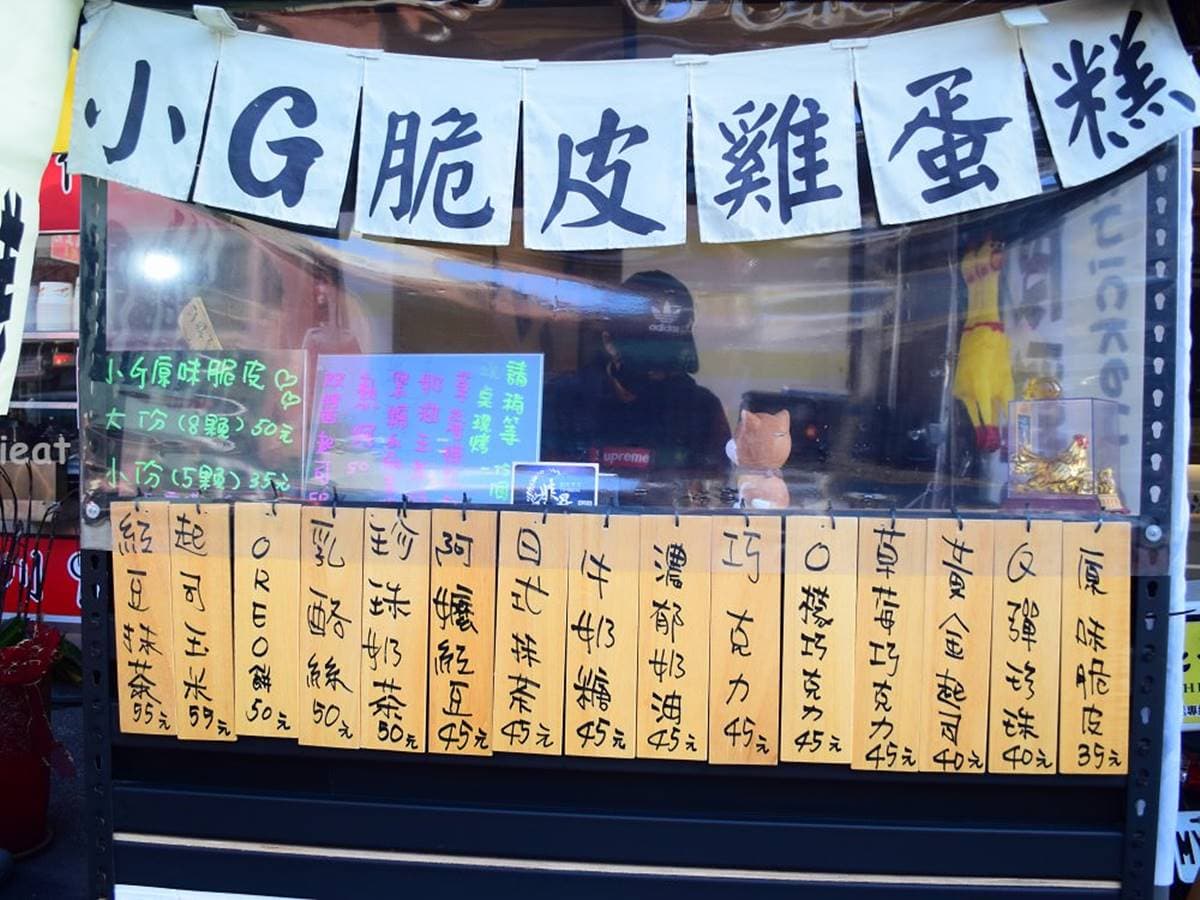 小G脆皮雞蛋糕
小G原味脆皮
大份(8顆)50元
小份(5顆)35元
請稍等
桌現烤
adidas
Supreme
ieat
原味脆皮35元
Q彈珍珠40元
黃金起司40元
草莓巧克力45元
O檬巧克力45元
巧克力45元
濃郁奶油45元
牛奶糖45元
日式抹茶45元
阿嬤紅豆45元
珍珠奶茶50元
乳酪絲50元
OREO餅50元
起司玉米55元
紅豆抹茶55元